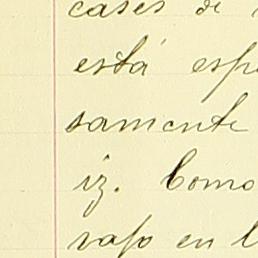 cases de
está esp
samente
iz. Como
vaso en l